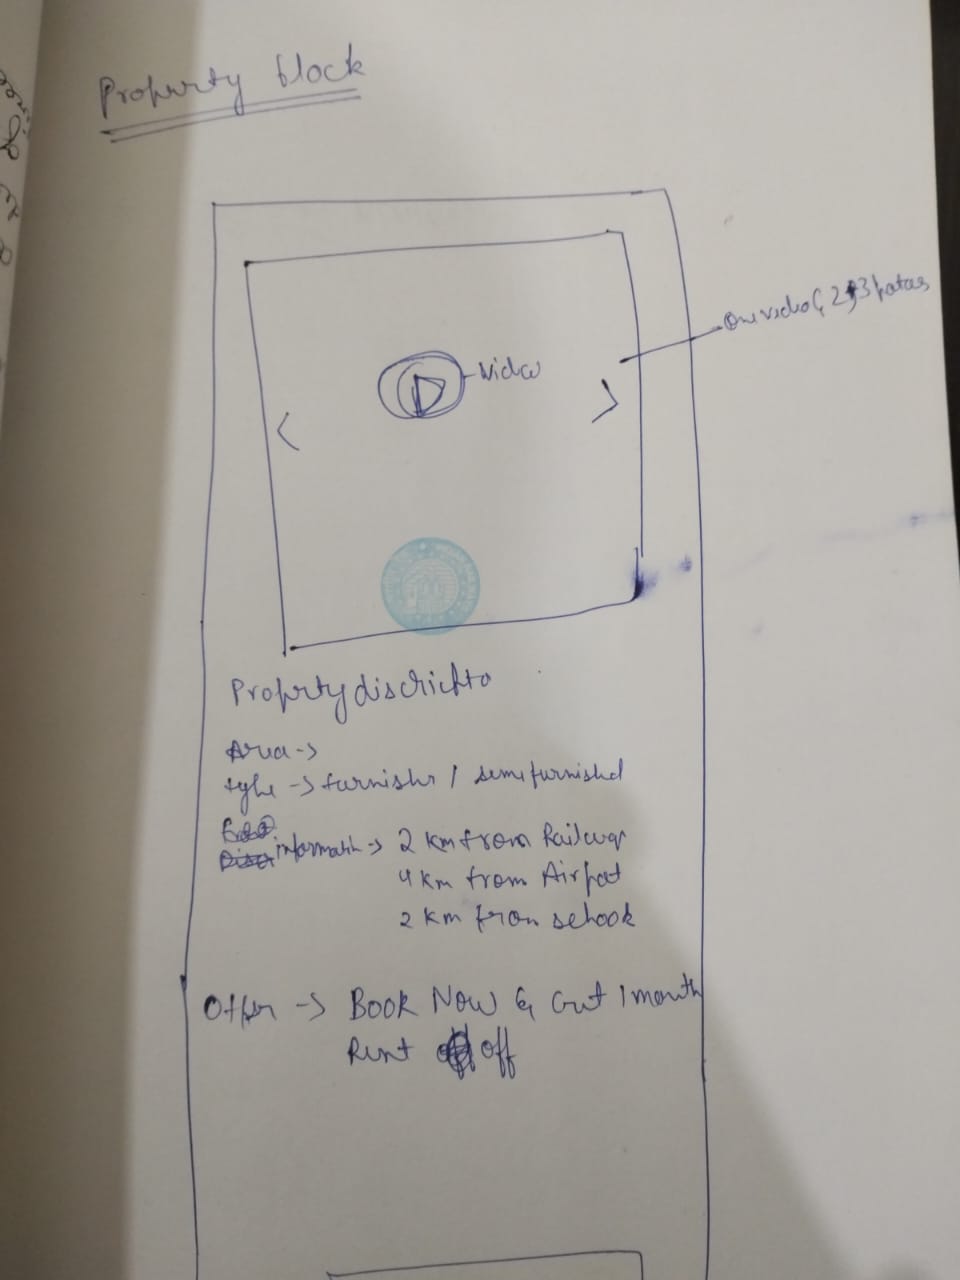 Property block
One video & 2, 3 photos
Video
Property discrichto
Area →
type → furnishr / semifurnished
informatih → 2 km from Railway
4 km from Airpot
2 km from schook
Offer → Book Now & Get 1 month
Rent off